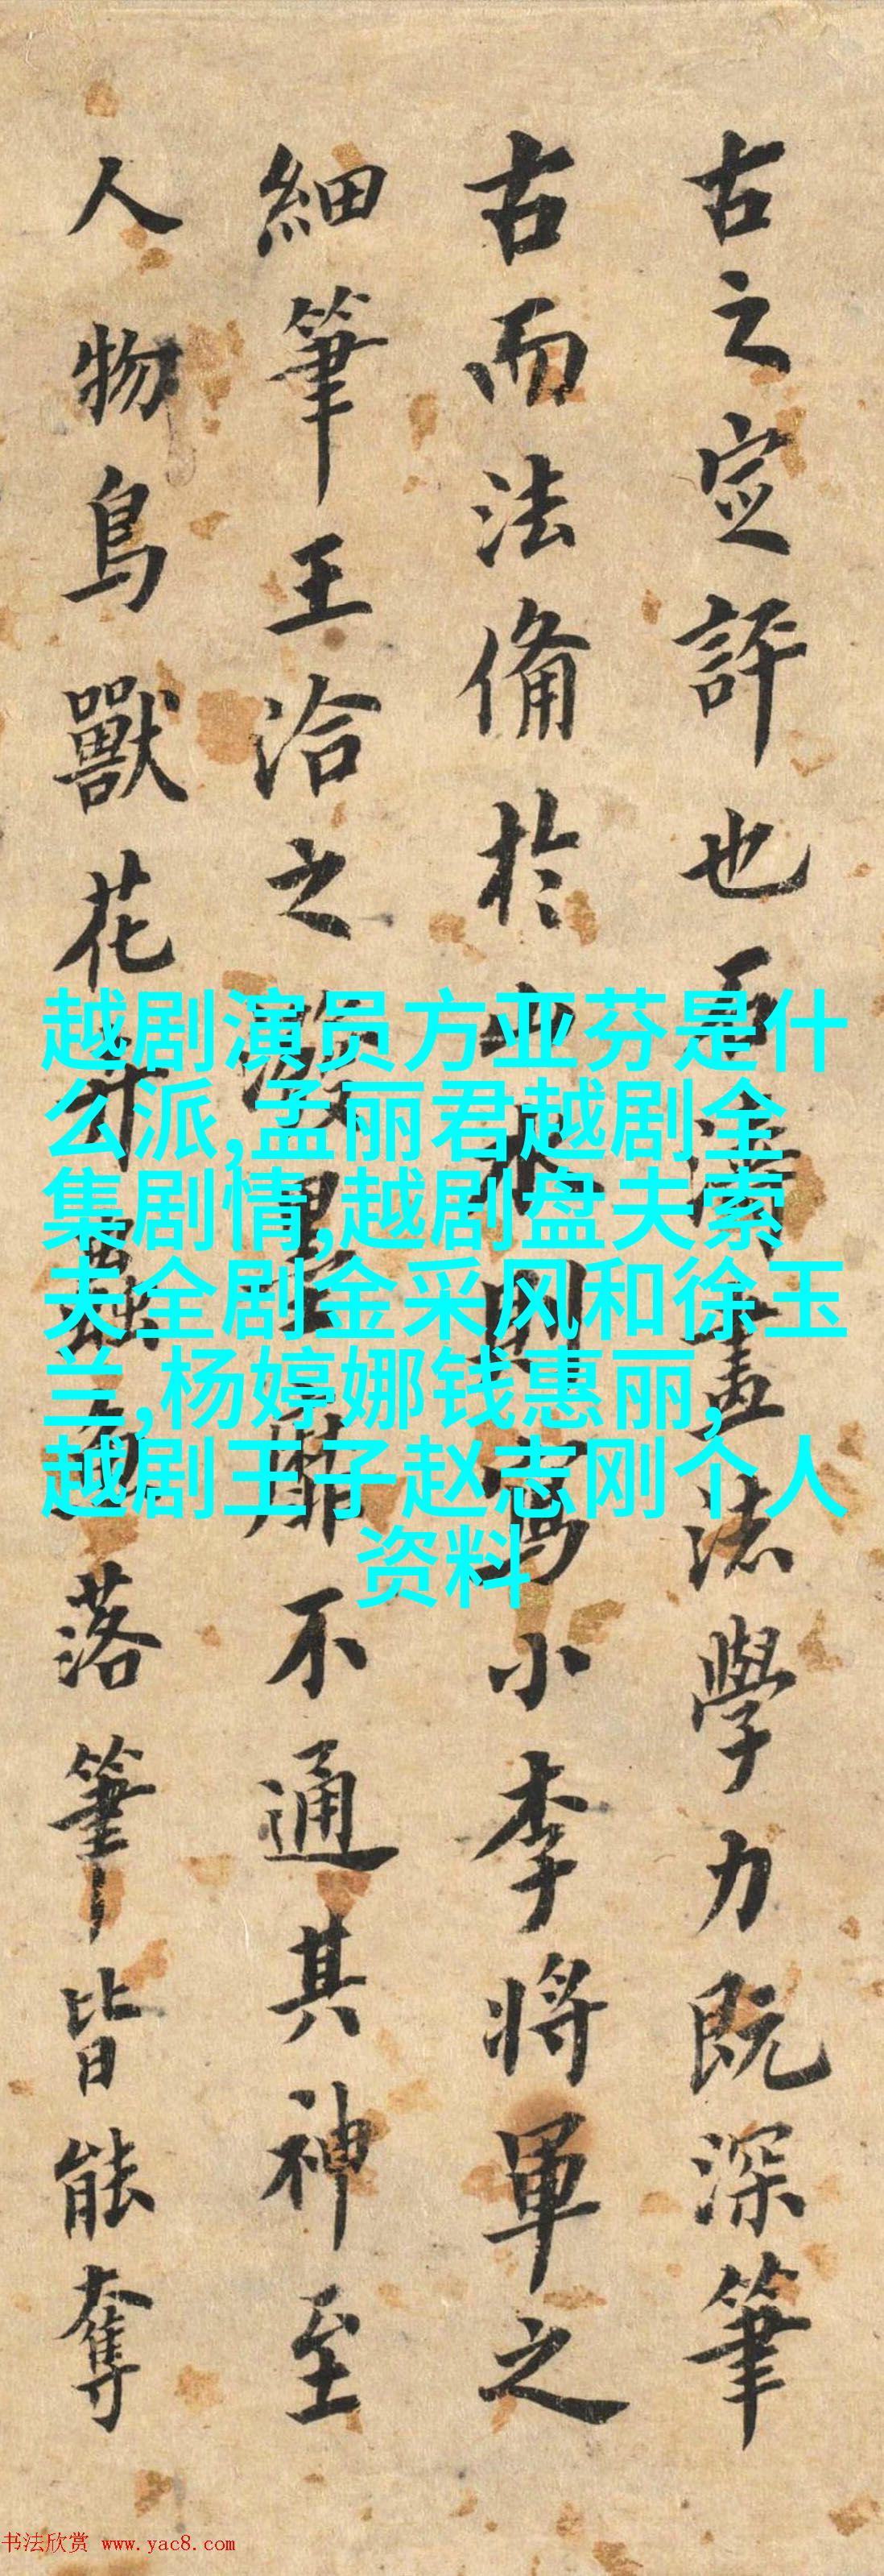 古之定評也石濤畫法學力既深筆
古而法備於山水則寫小李將軍之
細筆王洽之潑墨靡不通其神至
人物鳥獸花卉蟲魚落筆皆能奪
越剧演员方亚芬是什
么派,孟丽君越剧全
集剧情,越剧盘夫索
夫全剧金采风和徐玉
兰,杨婷娜钱惠丽,
越剧王子赵志刚个人
资料
书法欣赏 www.yac8.com